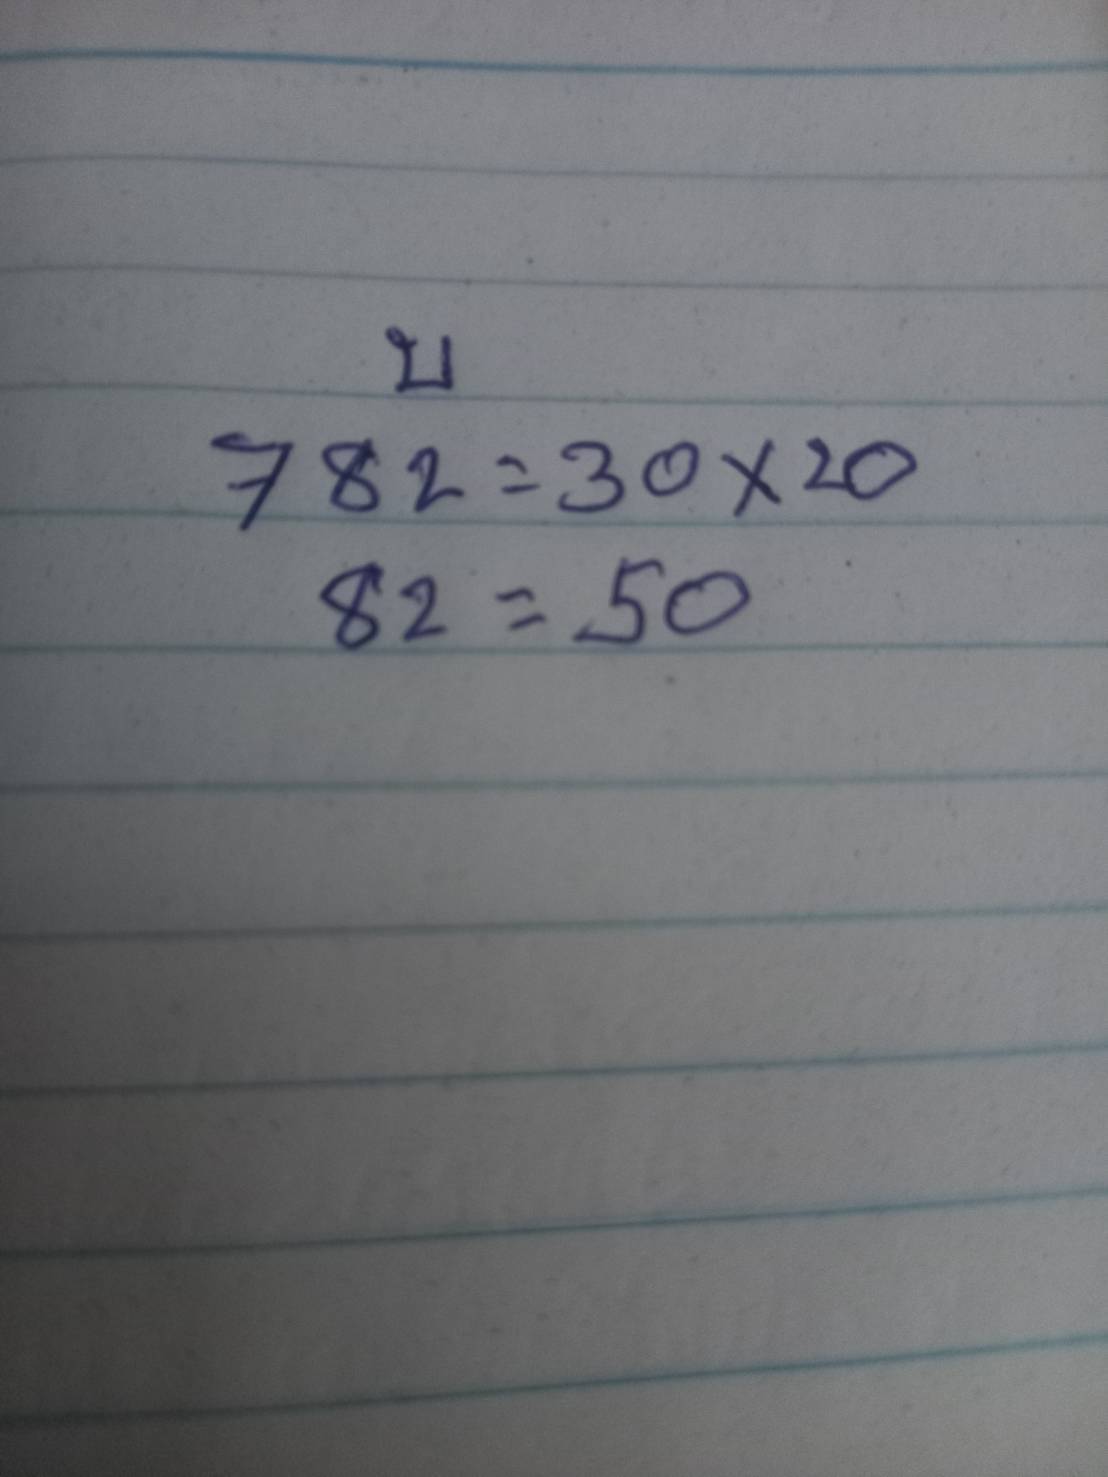 บ
782=30×20
82=50